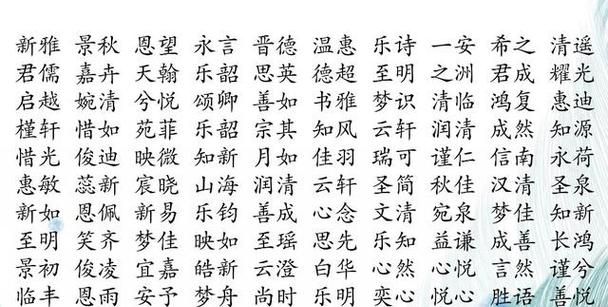 新雅 景秋 恩望 永言 晋德 温惠 乐诗 一安 希之 清遥
君儒 嘉卉 天翰 乐韶 思英 德超 至明 之洲 君成 耀光
启越 婉清 兮悦 颂卿 善如 书雅 梦识 清临 鸿复 惠迪
槿轩 惜如 苑菲 乐韶 宗其 知风 云轩 润清 成然 知源
惜光 俊迪 映微 知新 月如 佳羽 瑞可 谨仁 信南 永荷
惠敏 蕊新 宸晓 山海 润清 云轩 圣简 秋佳 汉清 圣泉
新如 恩佩 新易 乐钧 善成 心念 文清 宛泉 梦佳 知新
至明 笑齐 梦佳 映如 至瑶 思先 乐知 益谦 成善 长鸿
景初 俊凌 宜嘉 皓新 云澄 白华 心然 心悦 言然 谨兮
临丰 恩雨 安予 梦舟 尚时 乐明 奕心 悦心 胜语 善悦